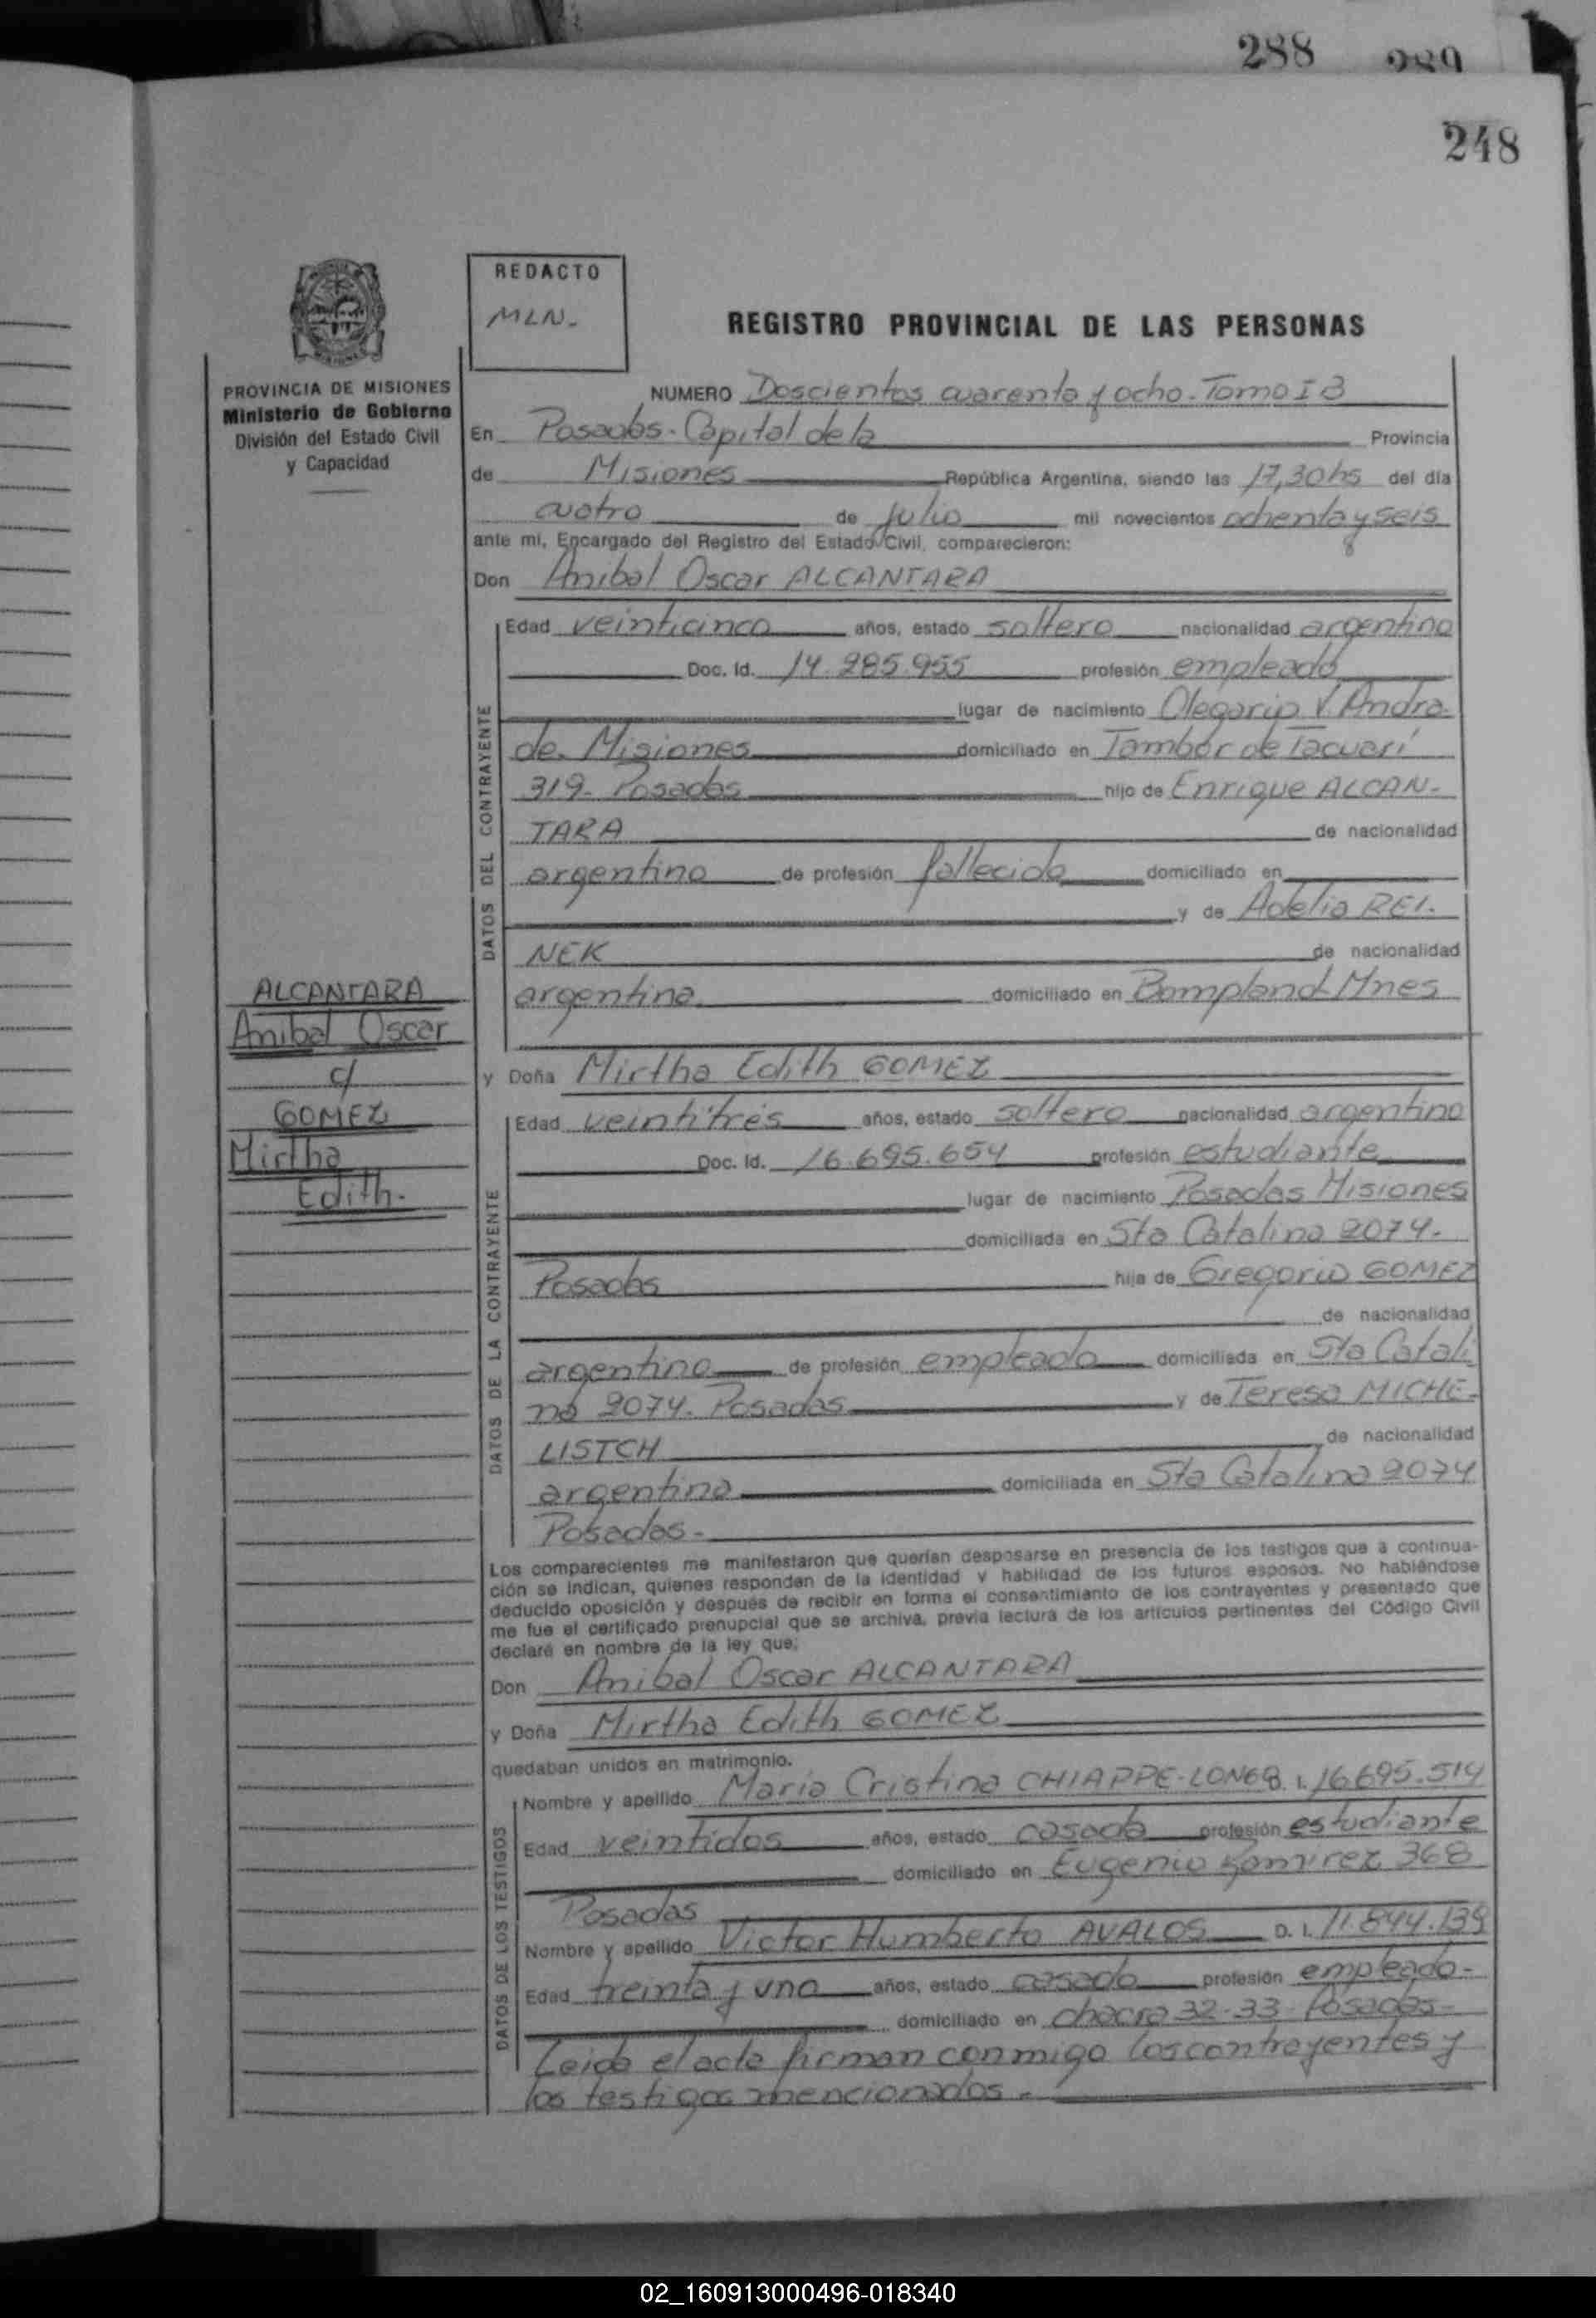 288 289
248
REDACTO
MLN-
REGISTRO PROVINCIAL DE LAS PERSONAS
PROVINCIA DE MISIONES
Ministerio de Gobierno
División del Estado Civil
y Capacidad
NUMERO Doscientos cuarenta y ocho. Tomo I B
En Posadas. Capital de la Provincia
de Misiones República Argentina, siendo las 17,30 hs del día
cuatro de julio mil novecientos ochenta y seis
ante mí, Encargado del Registro del Estado Civil, comparecieron:
Don Anibal Oscar ALCANTARA
DATOS DEL CONTRAYENTE
Edad veinticinco años, estado soltero nacionalidad argentino
Doc. Id. 14.285.955 profesión empleado
lugar de nacimiento Olegario V. Andra-
de. Misiones domiciliado en Tambor de Tacuarí
319- Posadas hijo de Enrique ALCAN-
TARA de nacionalidad
argentino de profesión fallecido domiciliado en
y de Adelia REI-
NEK de nacionalidad
argentina domiciliado en Bompland Mnes
ALCANTARA
Anibal Oscar
c/
GOMEZ
Mirtha
Edith.
y Doña Mirtha Edith GOMEZ
DATOS DE LA CONTRAYENTE
Edad veintitrés años, estado soltera nacionalidad argentina
Doc. Id. 16.695.654 profesión estudiante
lugar de nacimiento Posadas Misiones
domiciliada en Sta Catalina 2074.
Posadas hija de Gregorio GOMEZ
de nacionalidad
argentino de profesión empleado domiciliada en Sta Catali
na 2074. Posadas y de Teresa MICHE-
LISTCH de nacionalidad
argentina domiciliada en Sta Catalina 2074
Posadas-
Los comparecientes me manifestaron que querían desposarse en presencia de los testigos que a continua-
ción se indican, quienes responden de la identidad y habilidad de los futuros esposos. No habiéndose
deducido oposición y después de recibir en forma el consentimiento de los contrayentes y presentado que
me fue el certificado prenupcial que se archiva, previa lectura de los artículos pertinentes del Código Civil
declaré en nombre de la ley que:
Don Anibal Oscar ALCANTARA
y Doña Mirtha Edith GOMEZ
quedaban unidos en matrimonio.
DATOS DE LOS TESTIGOS
Nombre y apellido Maria Cristina CHIAPPE-LONGB. I. 16.695.514
Edad veintidos años, estado casada profesión estudiante
domiciliado en Eugenio Ramirez 368
Posadas
Nombre y apellido Victor Humberto AVALOS D. I. 11.844.139
Edad treinta y uno años, estado casado profesión empleado-
domiciliado en chacra 32-33- Posadas-
Leida el acta firman conmigo los contrayentes y
los testigos mencionados.-
02_160913000496-018340